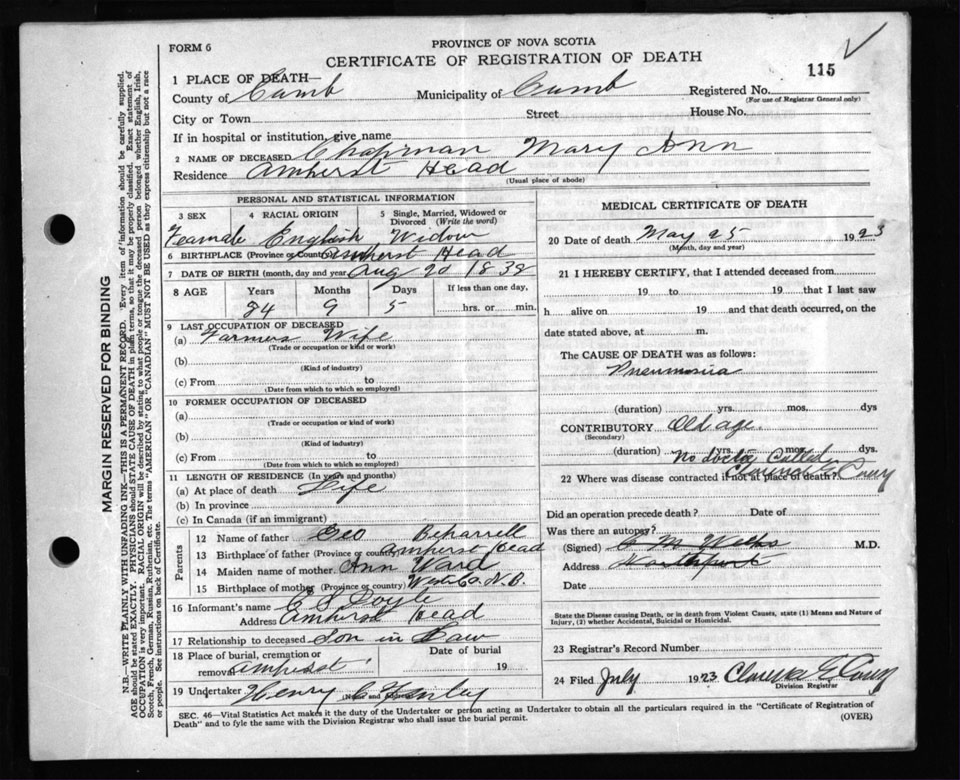 FORM 6
PROVINCE OF NOVA SCOTIA
CERTIFICATE OF REGISTRATION OF DEATH
115
1 PLACE OF DEATH—
County of Cumb Municipality of Cumb Registered No.
(For use of Registrar General only)
City or Town Street House No.
If in hospital or institution, give name
2 NAME OF DECEASED Chapman Mary Ann
Residence Amherst Head
(Usual place of abode)
PERSONAL AND STATISTICAL INFORMATION
3 SEX 4 RACIAL ORIGIN 5 Single, Married, Widowed or Divorced (Write the word)
Feamale English Widow
6 BIRTHPLACE (Province or Country) Amherst Head
7 DATE OF BIRTH (month, day and year) Aug 20 1838
8 AGE Years Months Days If less than one day,
84 9 5 hrs. or min.
9 LAST OCCUPATION OF DECEASED
(a) Farmers Wife
(Trade or occupation or kind or work)
(b)
(Kind of industry)
(c) From to
(Date from which to which so employed)
10 FORMER OCCUPATION OF DECEASED
(a)
(Trade or occupation or kind of work)
(b)
(Kind of industry)
(c) From to
(Date from which to which so employed)
11 LENGTH OF RESIDENCE (In years and months)
(a) At place of death Life
(b) In province
(c) In Canada (if an immigrant)
Parents
12 Name of father Geo Beharrell
13 Birthplace of father (Province or country) Amherst Head
14 Maiden name of mother Ann Ward
15 Birthplace of mother (Province or country) West. Co. N.B.
16 Informant's name C S Doyle
Address Amherst Head
17 Relationship to deceased Son in Law
18 Place of burial, cremation or removal Amherst Date of burial 19
19 Undertaker Henry
MEDICAL CERTIFICATE OF DEATH
20 Date of death May 25 1923
(Month, day and year)
21 I HEREBY CERTIFY, that I attended deceased from
19 to 19 that I last saw
h alive on 19 and that death occurred, on the
date stated above, at m.
The CAUSE OF DEATH was as follows:
Pneumonia
(duration) yrs. mos. dys
CONTRIBUTORY Old age.
(Secondary)
(duration) yrs. mos. dys.
No doctor Called
Clarence E Coury
22 Where was disease contracted if not at place of death?
Did an operation precede death? Date of
Was there an autopsy?
(Signed) C M Wilks M.D.
Address Northport
Date
State the Disease causing Death, or in death from Violent Causes, state (1) Means and Nature of
Injury, (2) whether Accidental, Suicidal or Homicidal.
23 Registrar's Record Number
24 Filed July 1923 Clarence E. Coury
Division Registrar
SEC. 46—Vital Statistics Act makes it the duty of the Undertaker or person acting as Undertaker to obtain all the particulars required in the "Certificate of Registration of
Death" and to fyle the same with the Division Registrar who shall issue the burial permit.
(OVER)
MARGIN RESERVED FOR BINDING
N.B.—WRITE PLAINLY WITH UNFADING INK—THIS IS A PERMANENT RECORD. Every item of information should be carefully supplied.
AGE should be stated EXACTLY. PHYSICIANS should STATE CAUSE OF DEATH in plain terms, so that it may be properly classified. Exact statement of
OCCUPATION is very important. RACIAL ORIGIN will be described by stating to what people or tongue the deceased person belonged whether English, Irish,
Scotch, French, German, Russian, Ruthenian, etc. The terms "AMERICAN" OR "CANADIAN" MUST NOT BE USED as they express citizenship but not a race
or people. See instructions on back of Certificate.